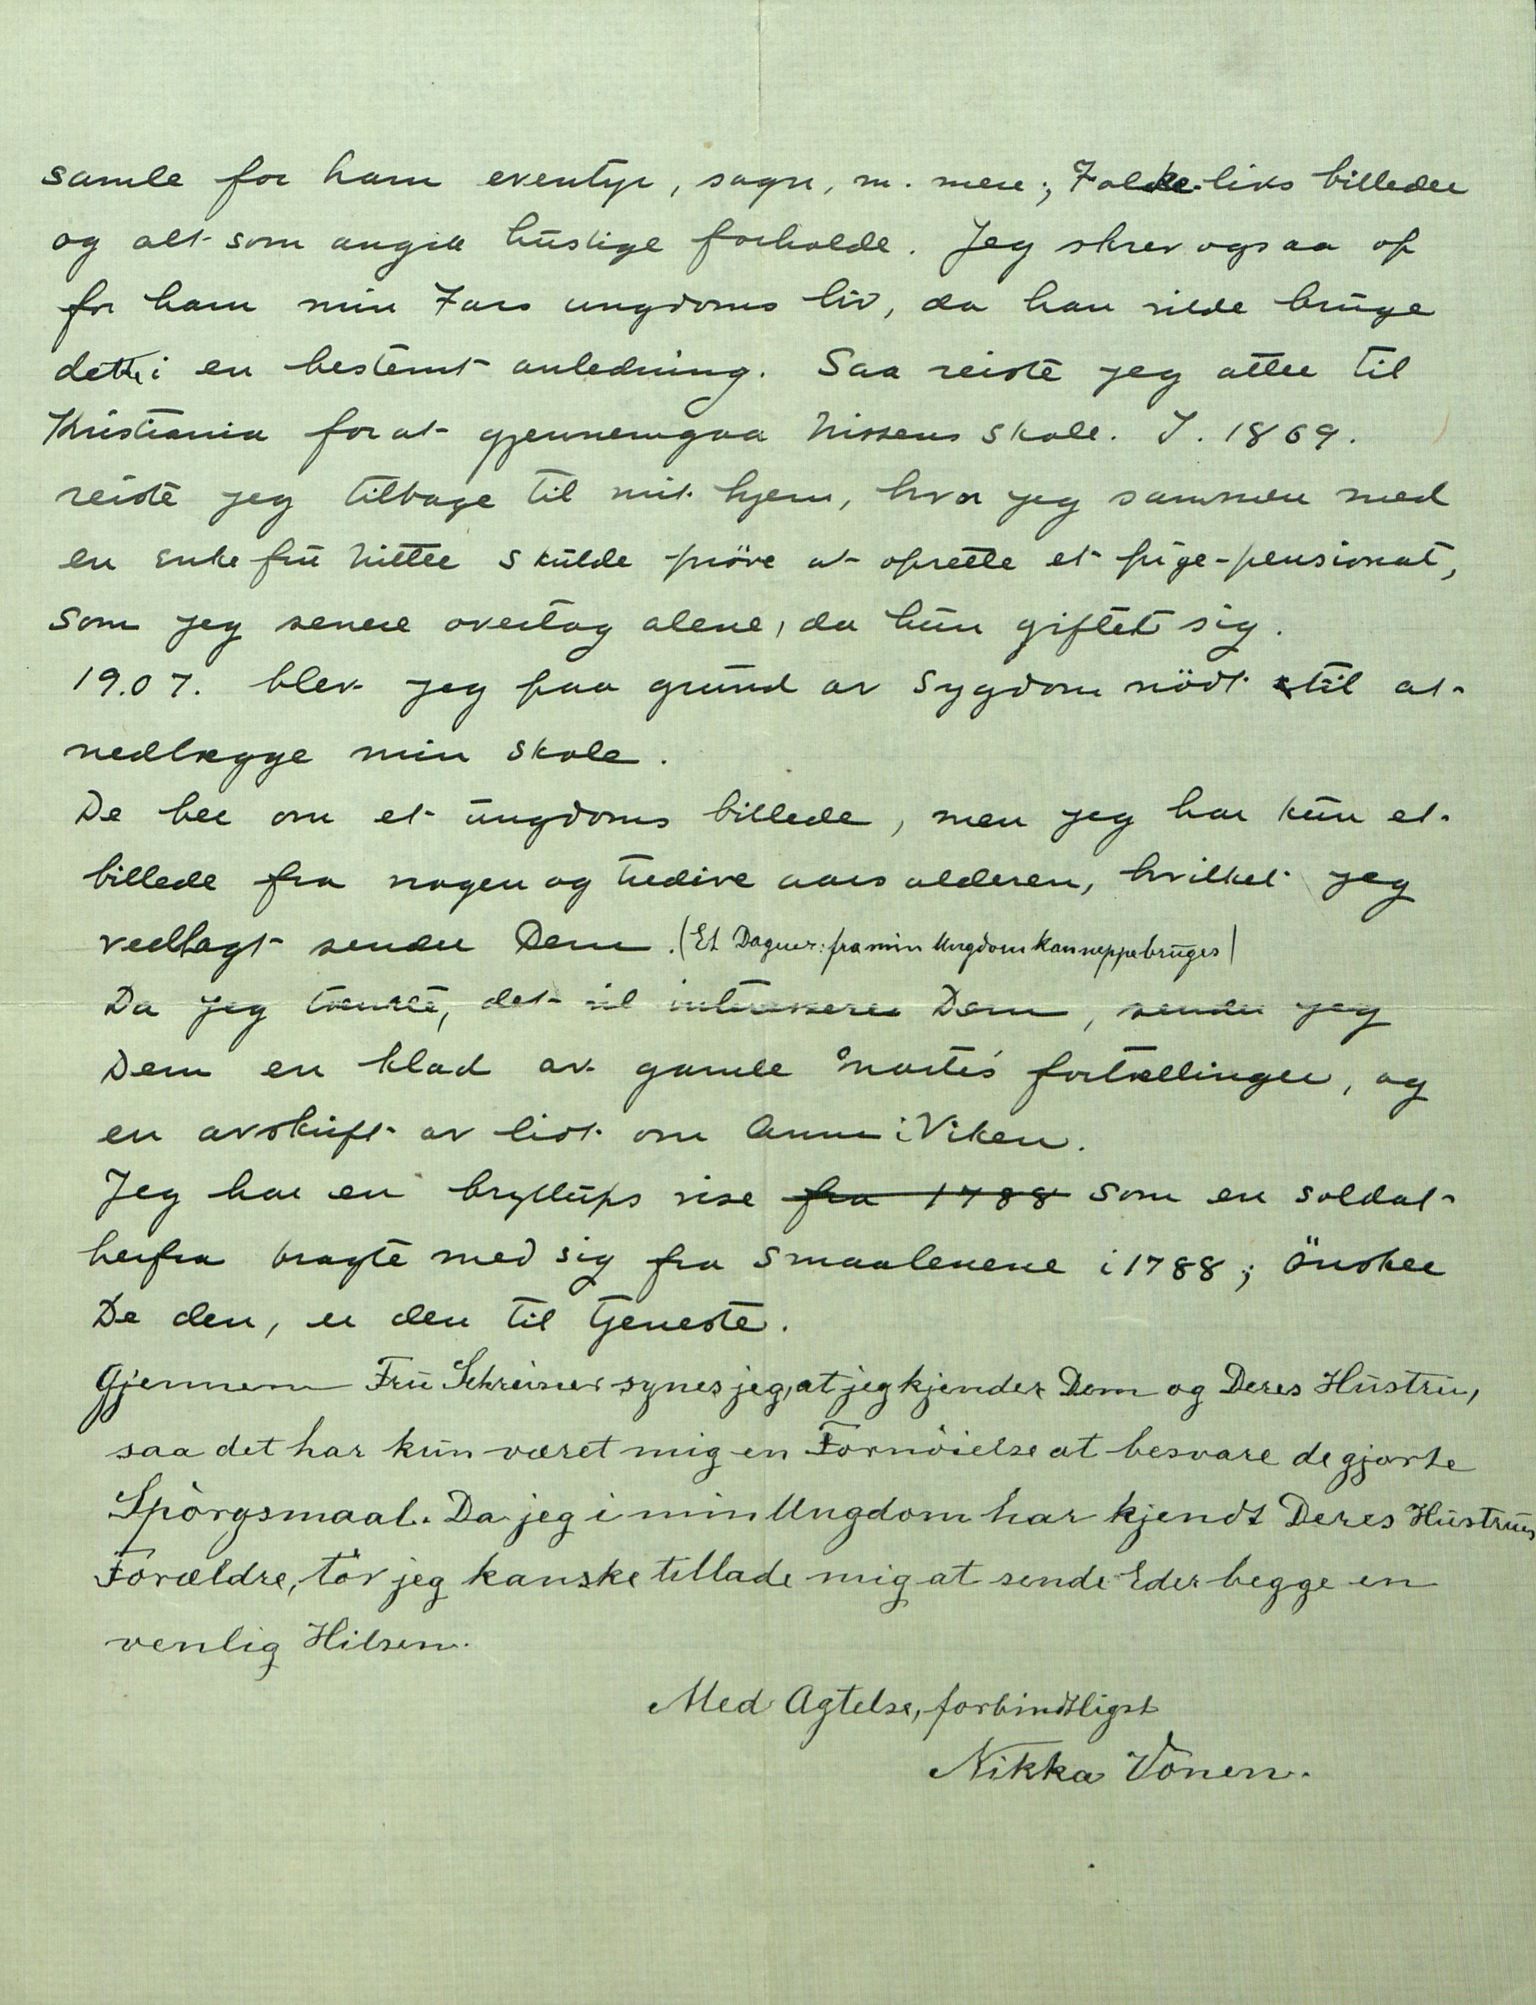 samle for ham eventyr, sagn, m. mere; Folke-livs billeder
og alt som angik huslige forholde. Jeg skrev ogsaa op
for ham min Fars ungdoms liv, da han vilde bruge
dette i en bestemt anledning. Saa reiste jeg atter til
Kristiania for at gjennemgaa Nissens Skole. I. 1869.
reiste jeg tilbage til mit hjem, hvor jeg sammen med
en enke fru skulde pröve at oprette et pige-pensionat,
som jeg senere overtog alene, da hun giftet sig.
19.07. blev jeg paa grund av sygdom nödt til at
nedlægge min skole.
De ber om et ungdoms billede, men jeg har kun et
billede fra nogen og tredive aars alderen, hvilket jeg
vedlagt sender Dem. (Et Daguer: fra min Ungdom kan neppe bruges)
Da jeg tænkte, det vil interessere Dem, sender jeg
Dem en klad av gamle fortællinger, og
en avskrift av lidt om Anne i Viken.
Jeg har en bryllups vise fra 1788 som en soldat
herfra bragte med sig fra Smaalenene i 1788; Önsker
De den, er den til tjeneste.
Gjennem Fru Schreiner synes jeg, at jeg kjender Dem og Deres Hustru,
saa det har kun været mig en Fornöielse at besvare de gjorte
Spörgsmaal. Da jeg i min Ungdom har kjendt Deres Hustrus
Forældre, tör jeg kanske tillade mig at sende Eder begge en
venlig Hilsen.
Med Agtelse, forbindtligst
Nikka Vonen.